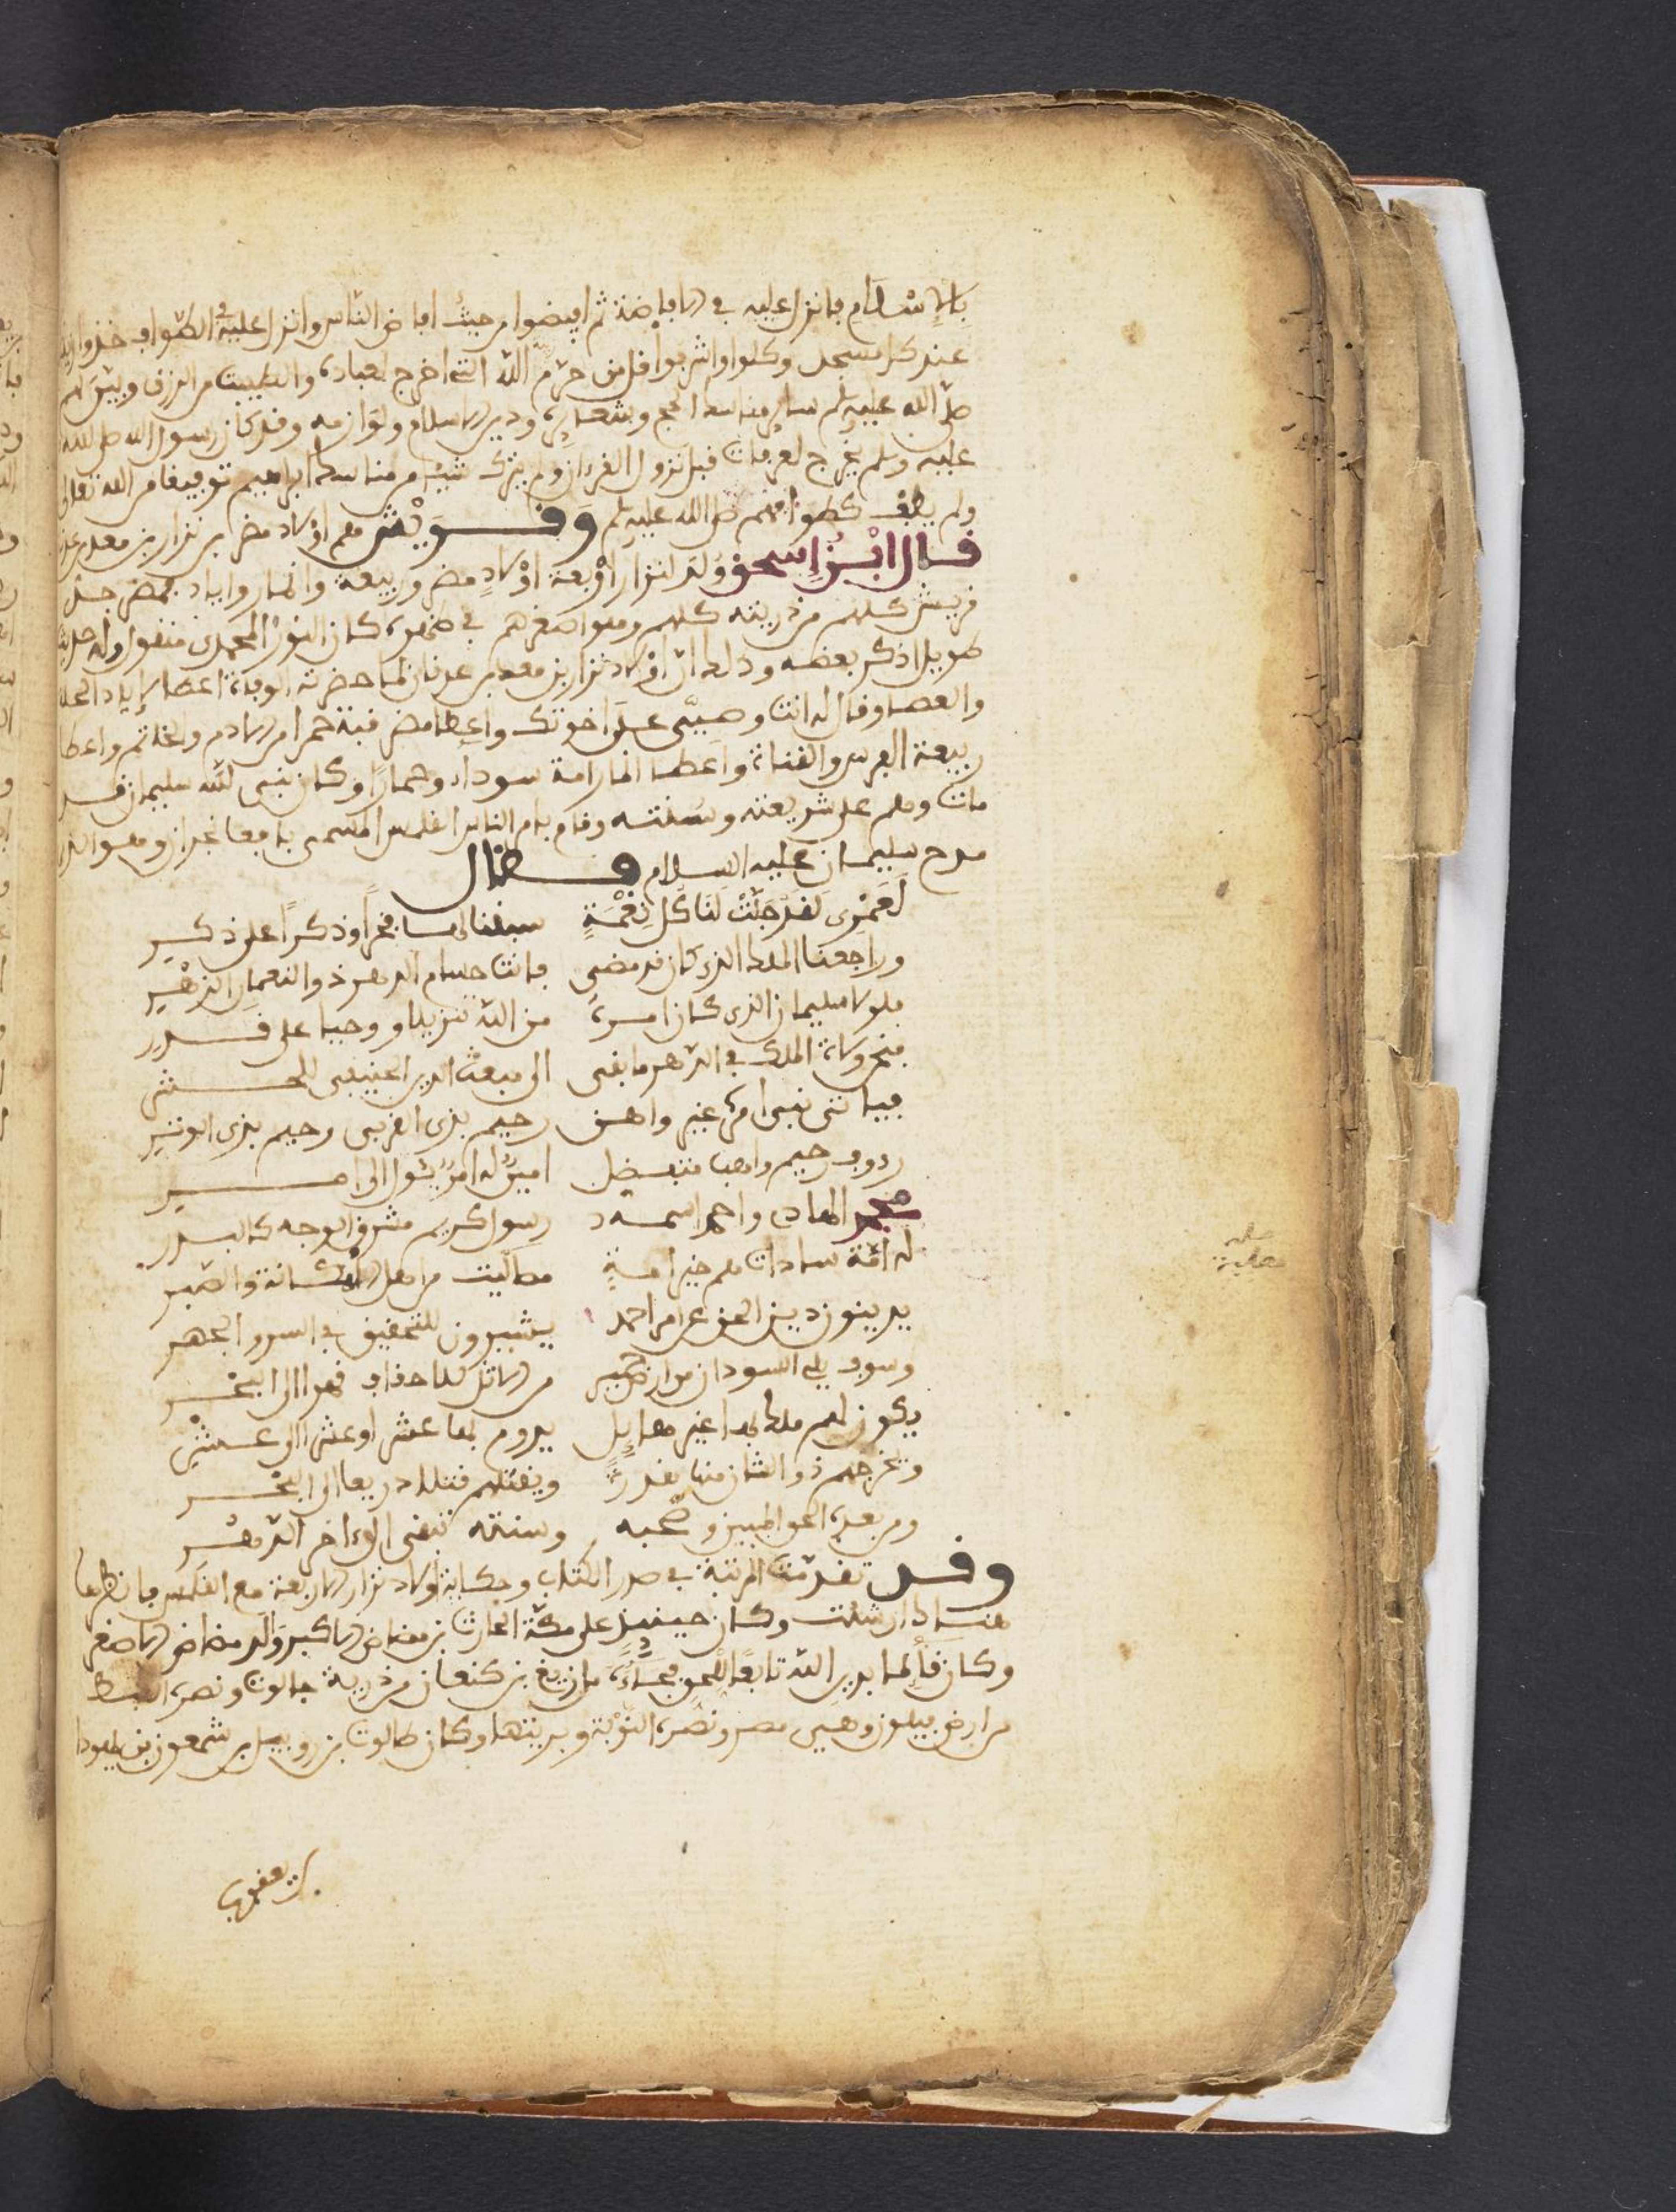 بالإسلام فانزل عليه في الافاضة ثم افيضوا من حيث افاض الناس وانزل عليه في الطواف خذوا زينتكم
عند كل مسجد وكلوا واشربوا قل من حرم زينة الله التي اخرج لعباده والطيبت من الرزق وبين لهم
صلى الله عليه وسلم ساير مناسك الحج وشعايره ودين الاسلام ولوازمه وقد كان رسول الله صلى الله
عليه وسلم يخرج لعرفات قبل نزول القرءان ولم يترك شيئا من مناسك ابراهيم توفيقا من الله تعالى
ولم يطف كطوافهم صلى الله عليه وسلم وقريش هم اولاد مضر بن نزار بن معد بن عدنان
قال ابن اسحق وُلد لنزار اربعة اولاد مضر وربيعة وانمار واياد فمضر جد
قريش كلهم من ذريته كلهم وهو اصغرهم في ظهره كان النور المحمدي منقول وله حديث
طويل اذكر بعضه وذلك ان اولاد نزار بن معد بن عدنان لما حضرته الوفاة اعطا لإياد الحلة
والعصا وقال له انت وصيي على اخوتك واعطا مضر قبة حمرا من الادم والخاتم واعطا
ربيعة الفرس والقناة واعطا انمار امة سوداء وحمارًا وكان نبي الله سليمان قد
مات وهم على شريعته وسنته وقام بامر الناس القلمس المسمى بافعا نجران وهو الذي
مدح سليمان عليه السلام فقال
لعمري لقد جلت لنا كل نعمة سبقنا لها فخراً وذكراً على ذكر
وراجعنا الملك الذي كان قد مضى فانت حسام الدهر ذو النعماء الزهر
فلولا سليمان الذي كان امره من الله تنزيلا ووحيا على قدر
فنحن ولاة الملك في الدهر ما بقى الى مبعث الدين الحنيفي للحشر
فياتي نبي امره غير واهن رحيم بذي القربى رحيم بذي الوتر
رءوف رحيم واهب متفضل امين له امر يئول الى امر
محمد الهادي واحمد اسمه رسول كريم مشرق الوجه كالبدر
له امة سادات هم خير امة من اهل الامانة والصبر
يدينون دين الحق عن امر احمد يشيرون للتحقيق في السر والجهر
وسوف يلي السودان من ارض حمير من الاثل للاحقاف قهرا الى البحر
يكون لهم ملك بها غير هايل يدوم بها عشرا وعشرا الى عشر
ويخرجهم ذو الشان منها بقدرة ويقتلهم قتلا ذريعا الى البحر
ومن بعده الحق المبين وصحبه وسنته تبقى الى ءاخر الدهر
وقد تقدمت المرتبة في صدر الكتاب وحكاية اولاد نزار الاربعة مع القلمس فانظرها
هناك ان شئت وكان حينيذ على مكة الحارث بن مضاض الاكبر والد مضاض الاصغر
وكان قائما بدين الله تابعا للحق فجاءه فازيغ بن كنعان من ذرية جالوت ونصره القبط
من ارض بيلون وهي مصر ونصره النوبة وبريتها وكان طالوت بن روبيل بن شمعون بن يهودا
بن يعقوب